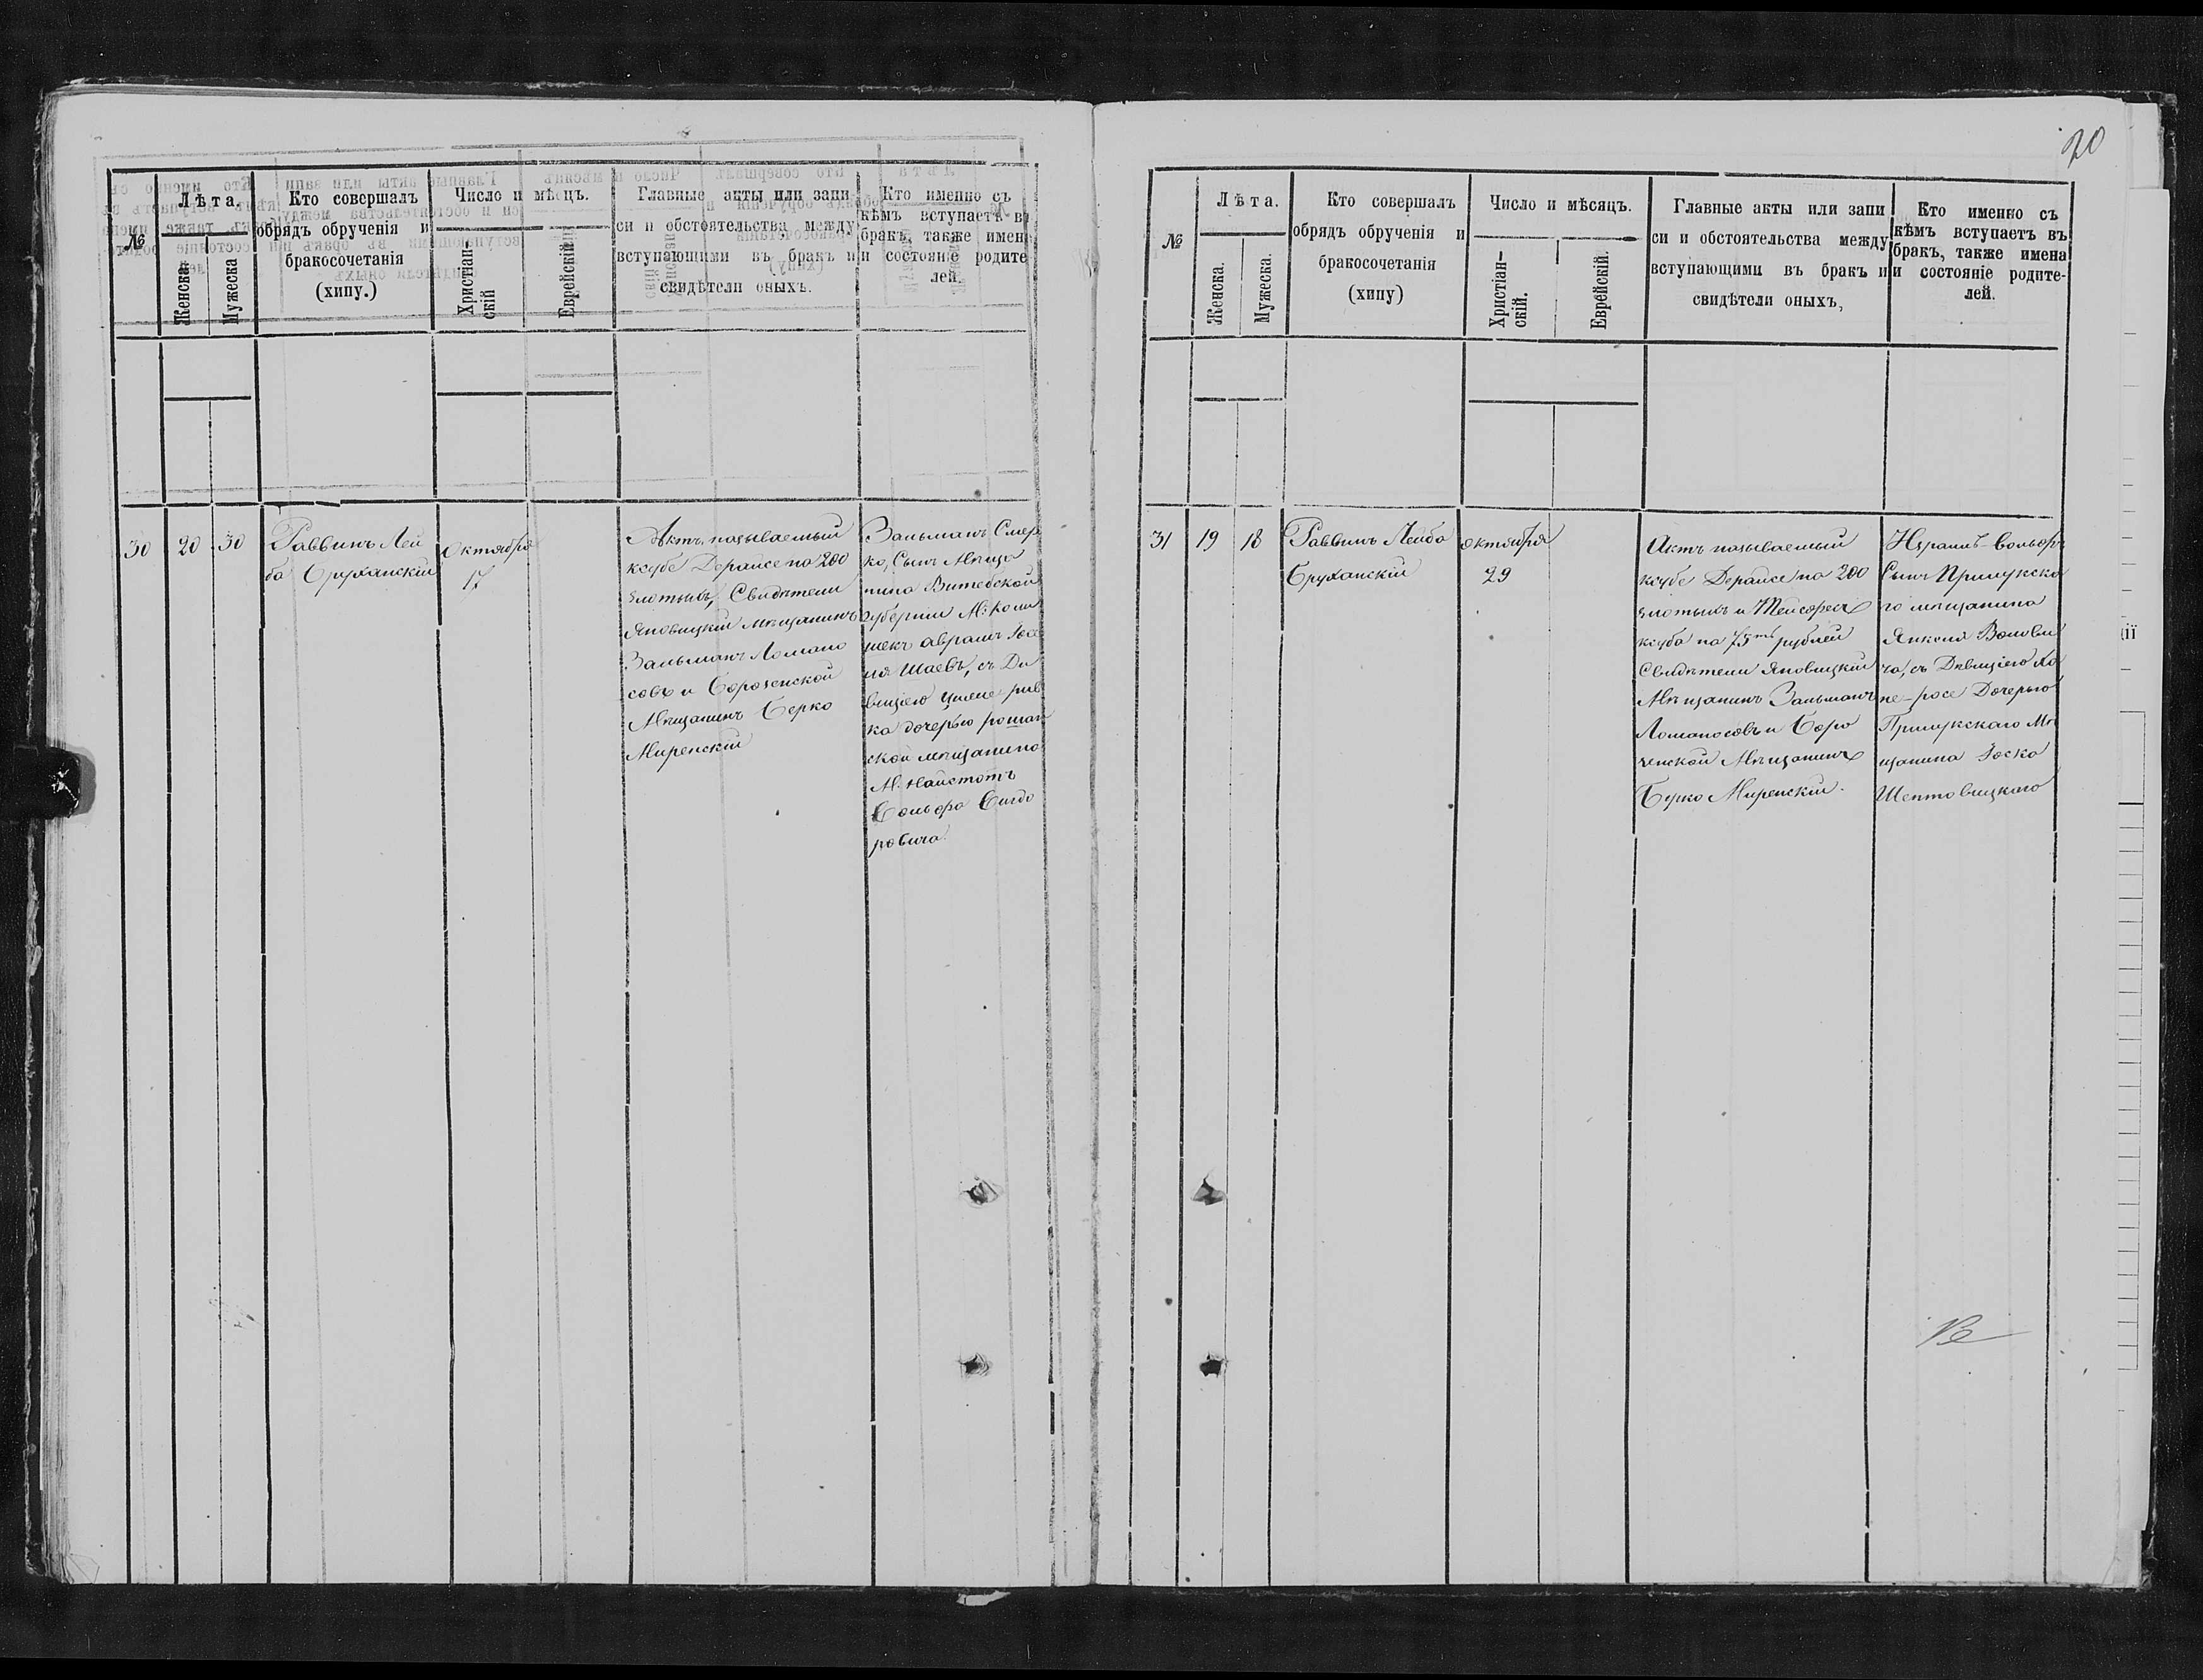 20
№
Лѣта.
Женска.
Мужеска
Кто совершалъ
обрядъ обрученія и
бракосочетанія
(хипу.)
Число и мѣсцъ.
Христіан-
скій
Еврейскій.
Главные акты или запи
си и обстоятельства между
вступающими въ бракъ и
свидѣтели оныхъ.
Кто именно съ
кѣмъ вступаетъ въ
бракъ, также имен
и состояніе родите
лей.
30
20
30
Раввинъ Лей
ба Бруханскій
Октября
17
Актъ называемый
ксубе Дерайсе на 200
злотыхъ, Свидѣтели
Яновицкій мѣщанинъ
Зальманъ Ломоно
совъ и
Мѣщанинъ Берко
Миренскій
Зальманъ Смер
ко, Сынъ Мѣща
нина Витебской
Губерніи М:
Авраамъ
Шаевъ, съ Дѣ
вицею рив
ка дочерью
ской мѣщанина
М.
Вольфа
ровича
№
Лѣта.
Женска.
Мужеска.
Кто совершалъ
обрядъ обрученія и
бракосочетанія
(хипу)
Число и мѣсяцъ.
Христіан-
скій.
Еврейскій.
Главные акты или запи
си и обстоятельства между
вступающими въ бракъ и
свидѣтели оныхъ,
Кто именно съ
кѣмъ вступаетъ въ
бракъ, также имена
и состояніе родите-
лей.
31
19
18
Раввинъ Лейба
Бруханскій
Октября
29
Актъ называемый
ксубе Дерайсе на 200
злотыхъ и Тейсофес
ксуба на 75ть рублей
Свидѣтели Яновицкій
Мѣщанинъ Зальманъ
Ломоносовъ и
Мѣщанинъ
Берко Миренскій.
Израиль-Вольфъ
Сынъ Прилукска
го мѣщанина
Янкеля Вольови
ча, съ Дѣвицею Ха
не-росе Дочерью
Прилукскаго Мѣ
щанина Іоска
Шентовицкаго